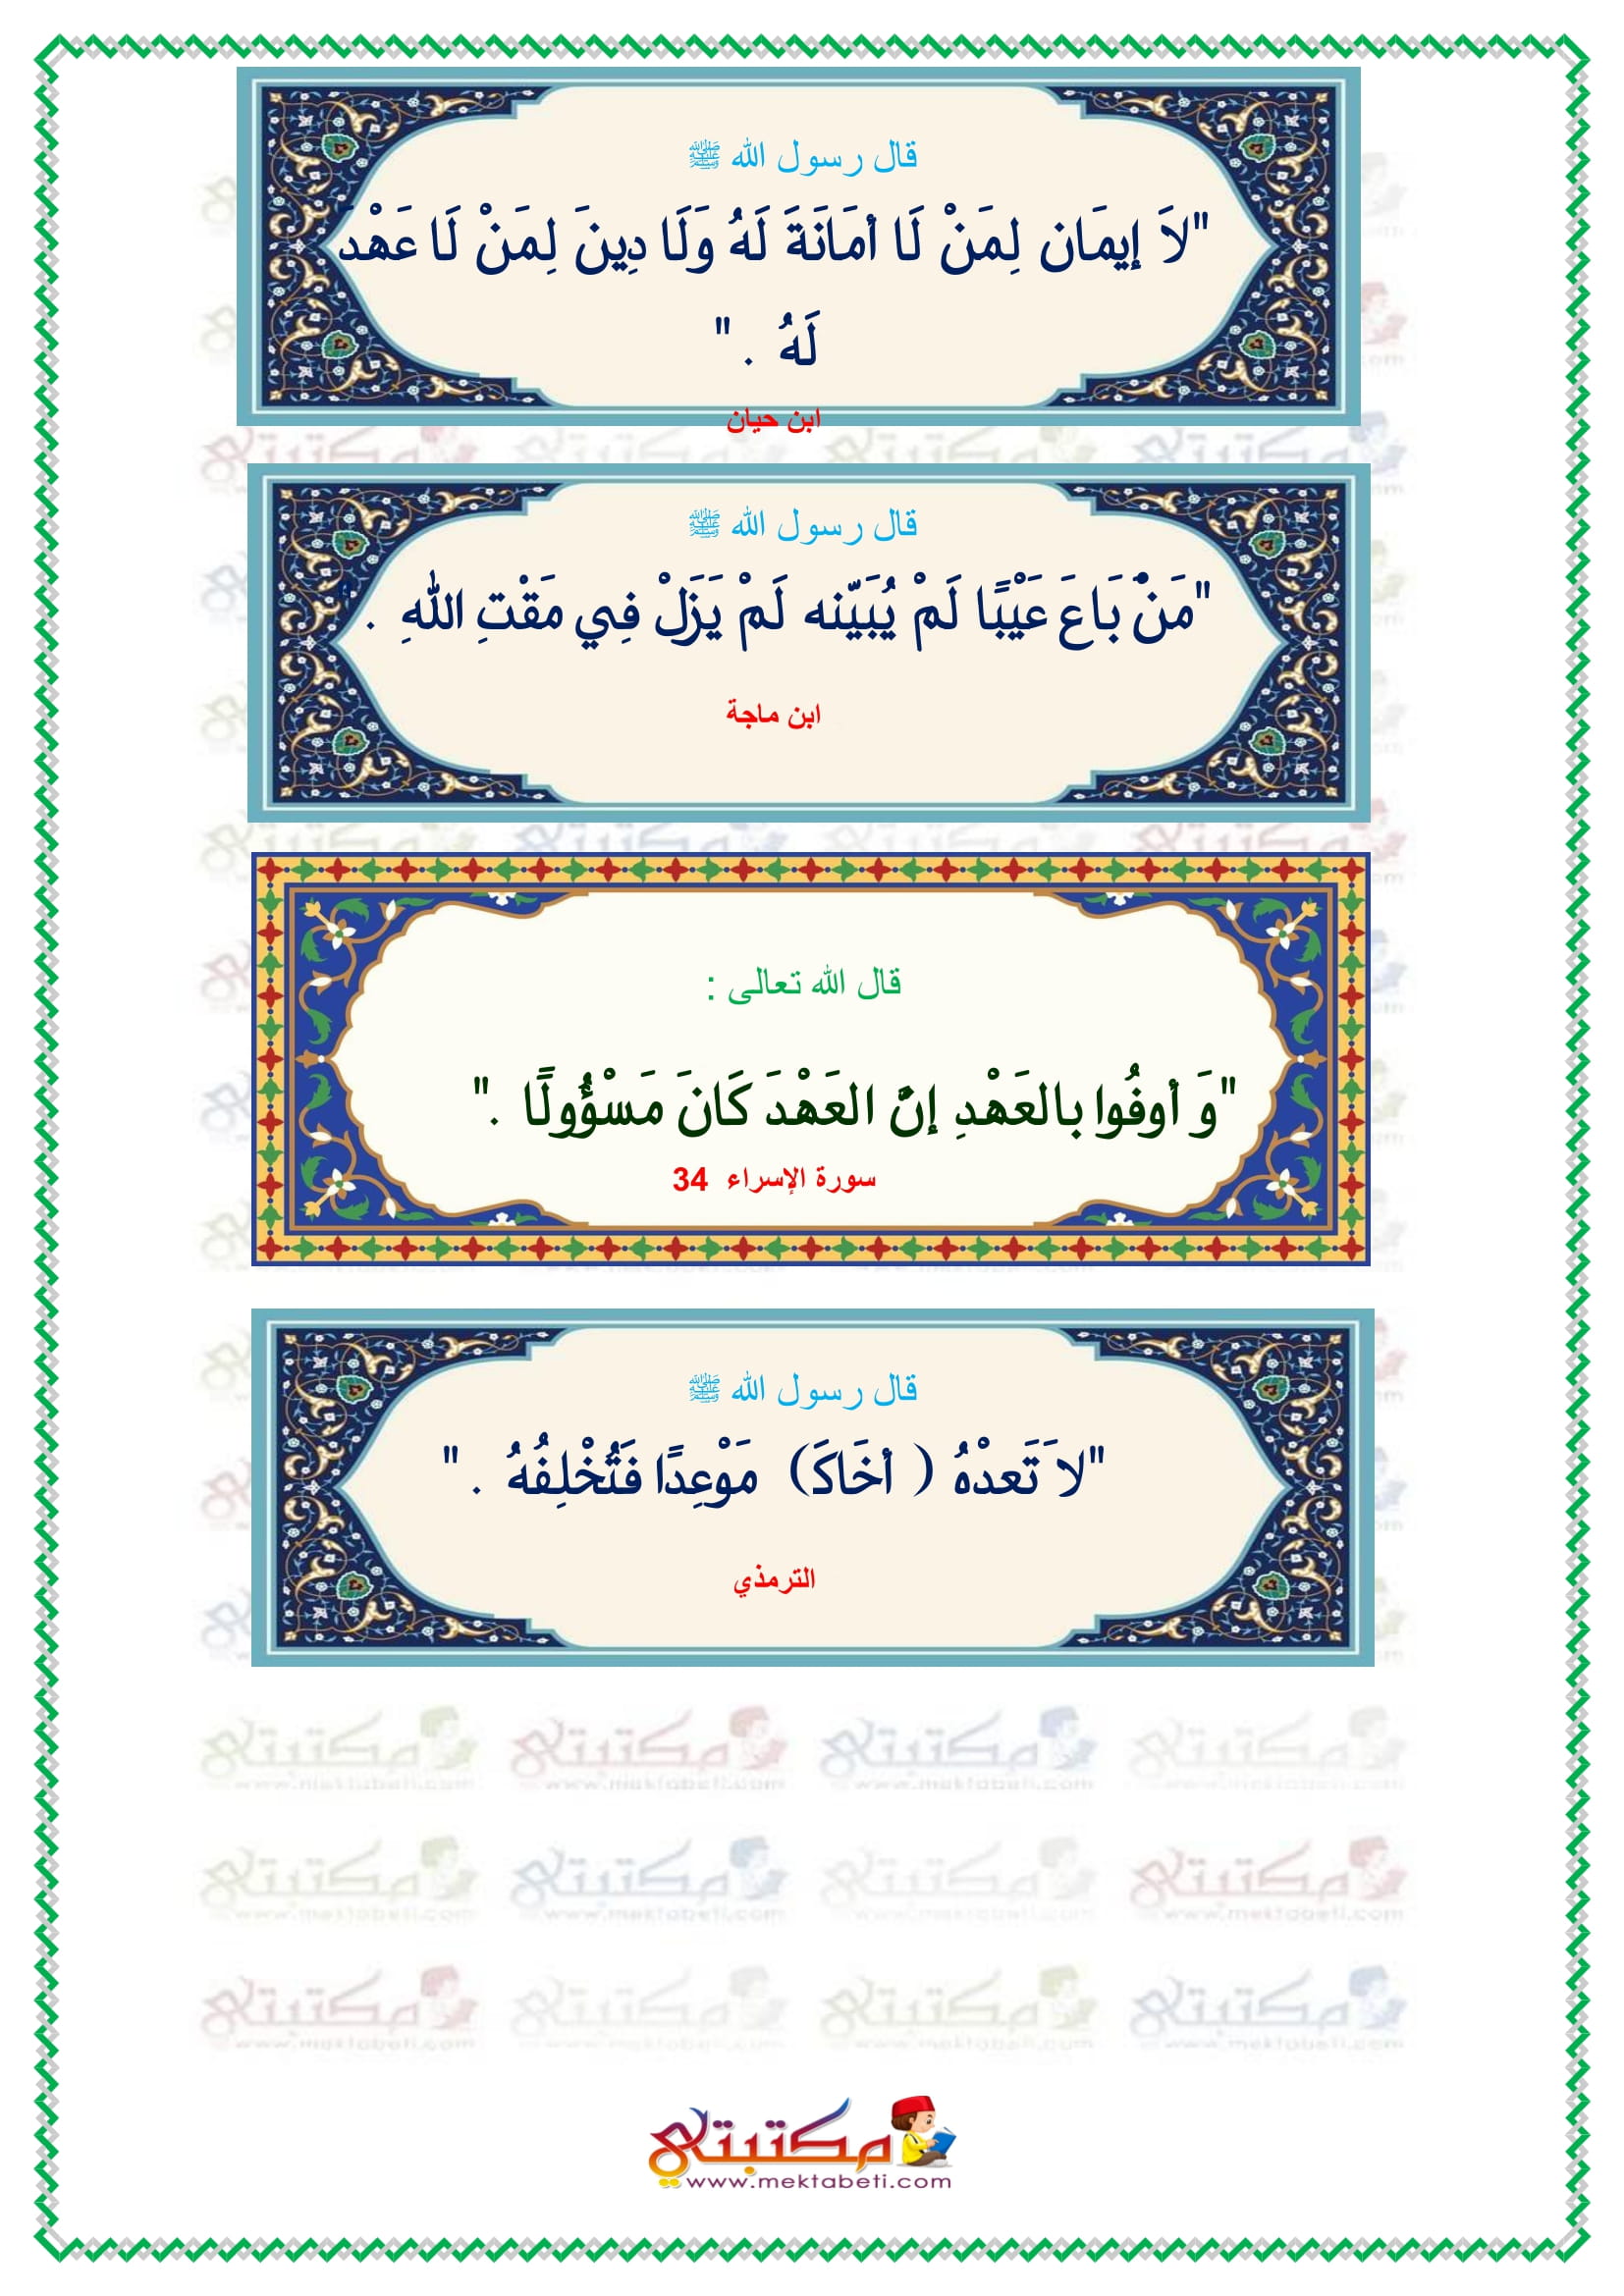 قال رسول الله ﷺ
"لاَ إيمَان لِمَنْ لَا أمَانَةَ لَهُ وَلَا دِينَ لِمَنْ لَا عَهْدَ
لَهُ . "
ابن حيان
قال رسول الله ﷺ
"مَنْ بَاعَ عَيْبًا لَمْ يُبَيّنه لَمْ يَزَلْ فِي مَقْتِ اللهِ . "
ابن ماجة
قال الله تعالى :
"وَ أوفُوا بالعَهْدِ إنَّ العَهْدَ كَانَ مَسْؤُولًا ."
سورة الإسراء 34
قال رسول الله ﷺ
"لاَ تَعدْهُ ( أخَاكَ) مَوْعِدًا فَتُخْلِفُهُ . "
الترمذي
مكتبتي
www.mektabeti.com